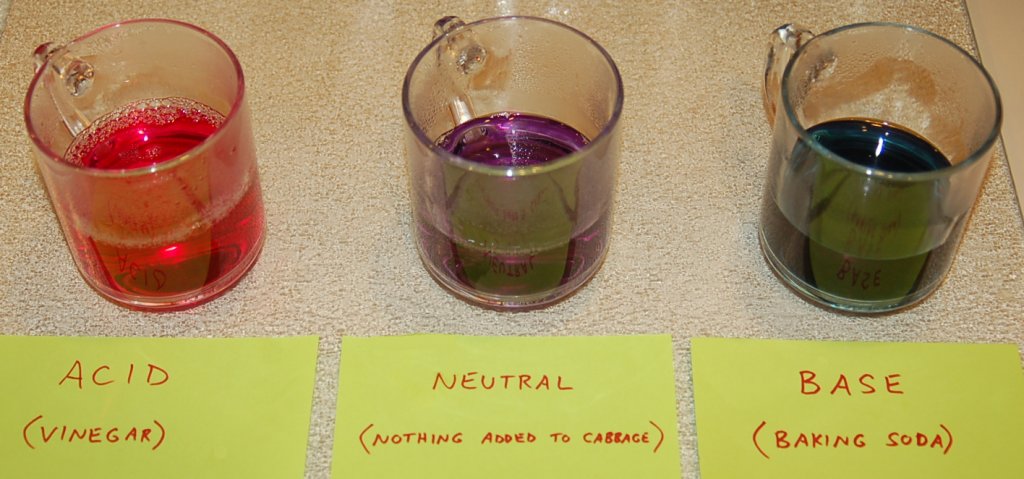 ACID
(VINEGAR)
NEUTRAL
(NOTHING ADDED TO CABBAGE)
BASE
(BAKING SODA)